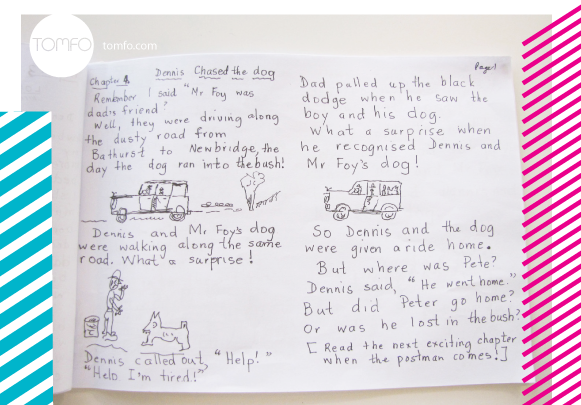 TOMFO
tomfo.com
Page 1
Chapter 4. Dennis Chased the dog
Remember I said "Mr Foy was
dad's friend?
Well, they were driving along
the dusty road from
Bathurst to Newbridge, the
day the dog ran into the bush!
Dennis and Mr Foy's dog
were walking along the same
road. What a surprise!
Dennis called out, "Help!"
"Help I'm tired!"
Dad pulled up the black
dodge when he saw the
boy and his dog.
What a surprise when
he recognised Dennis and
Mr Foy's dog!
So Dennis and the dog
were given a ride home.
But where was Pete?
Dennis said, "He went home."
But did Peter go home?
Or was he lost in the bush?
[Read the next exciting chapter
when the postman comes!]